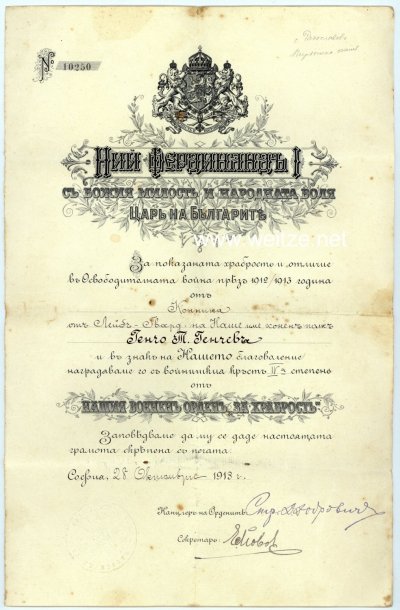 № 10250
Ний Фердинандъ I
съ Божия милость и народната воля
Царь на Българитѣ
www.weitze.net
За показаната храбрость и отличие
въ Освободителната война прѣзъ 1912/1913 година
отъ
Конника
отъ Лейбъ-Гвард. на Наше име коненъ полкъ
Генчо Т. Генчевъ
и въ знакъ на Нашето благоволение
награждаваме го съ войнишкия кръстъ IV степень
отъ
Нашия Воененъ Орденъ „За Храбрость“
Заповѣдваме да му се даде настоящата
грамота скрѣпена съ печата.
София, 28 Октомврий 1913 г.
Канцлеръ на Орденитѣ
Секретарь: